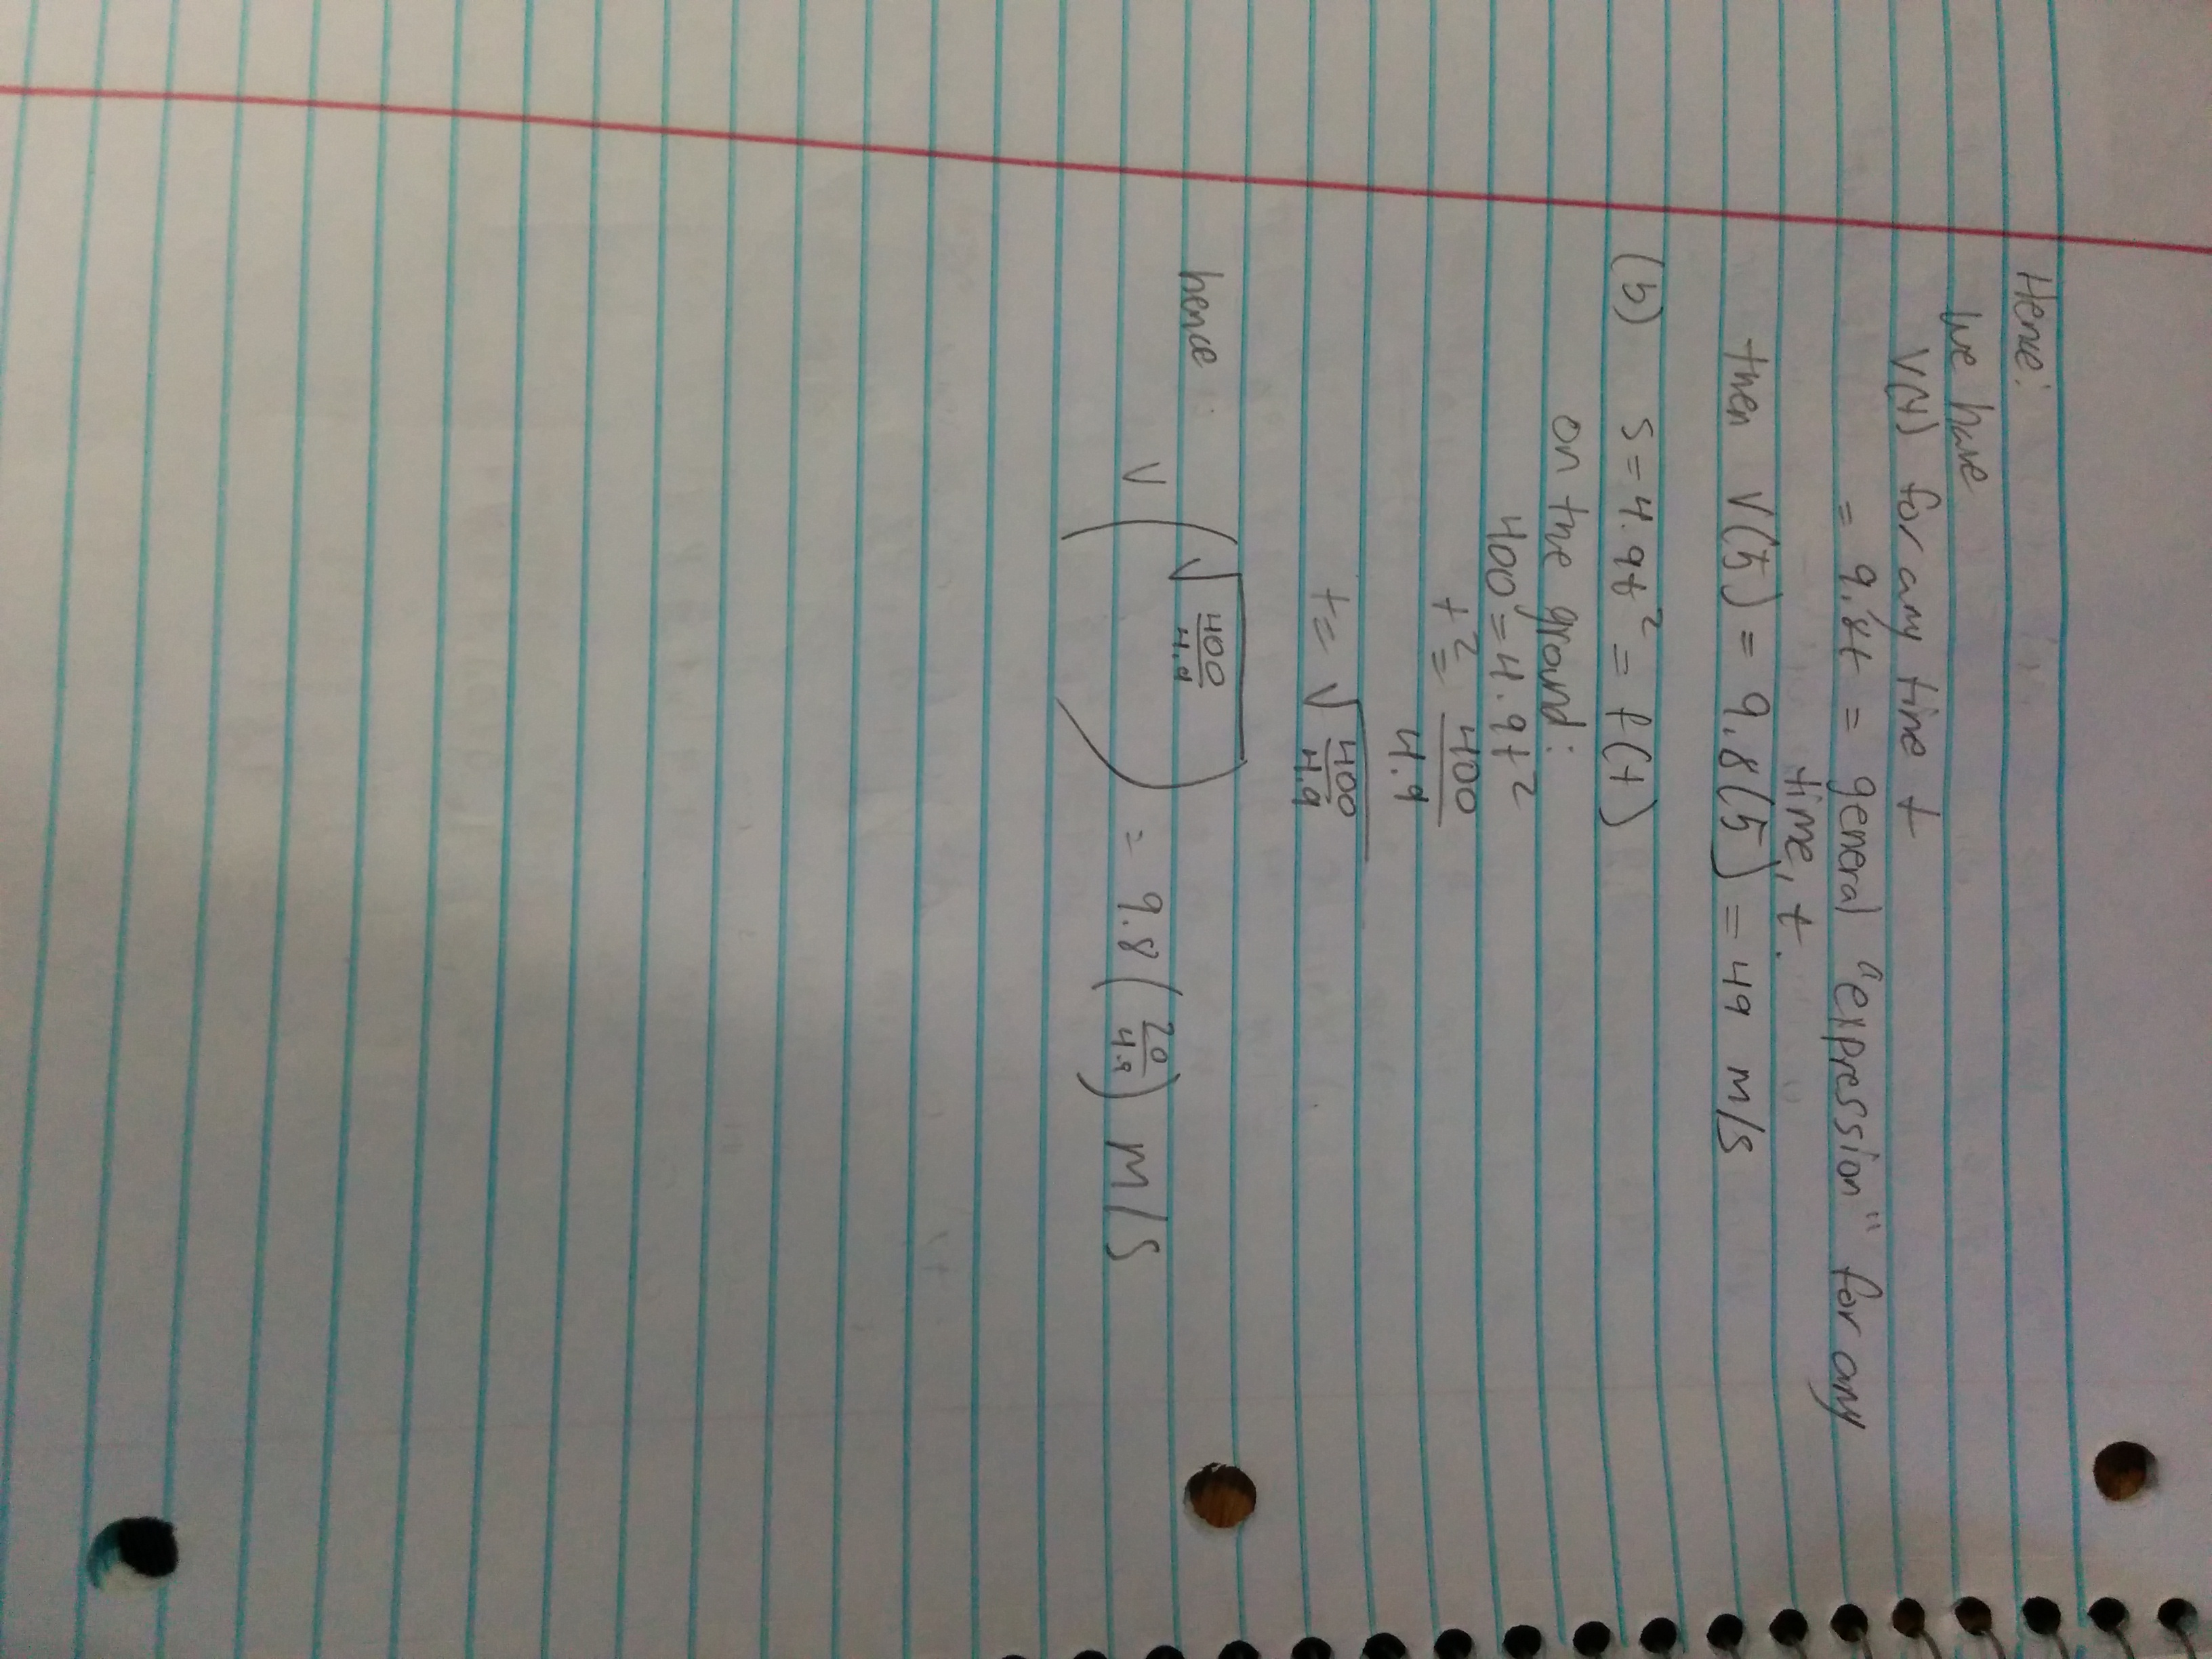 Hence:
we have
V(t) for any time t
= 9.8t = general "expression" for any
time, t.
then V(5) = 9.8(5) = 49 m/s
(b) S = 4.9t² = f(t)
on the ground:
400 = 4.9t²
t² = 400/4.9
t = √(400/4.9)
hence
V(√(400/4.9)) = 9.8(20/4.9) m/s